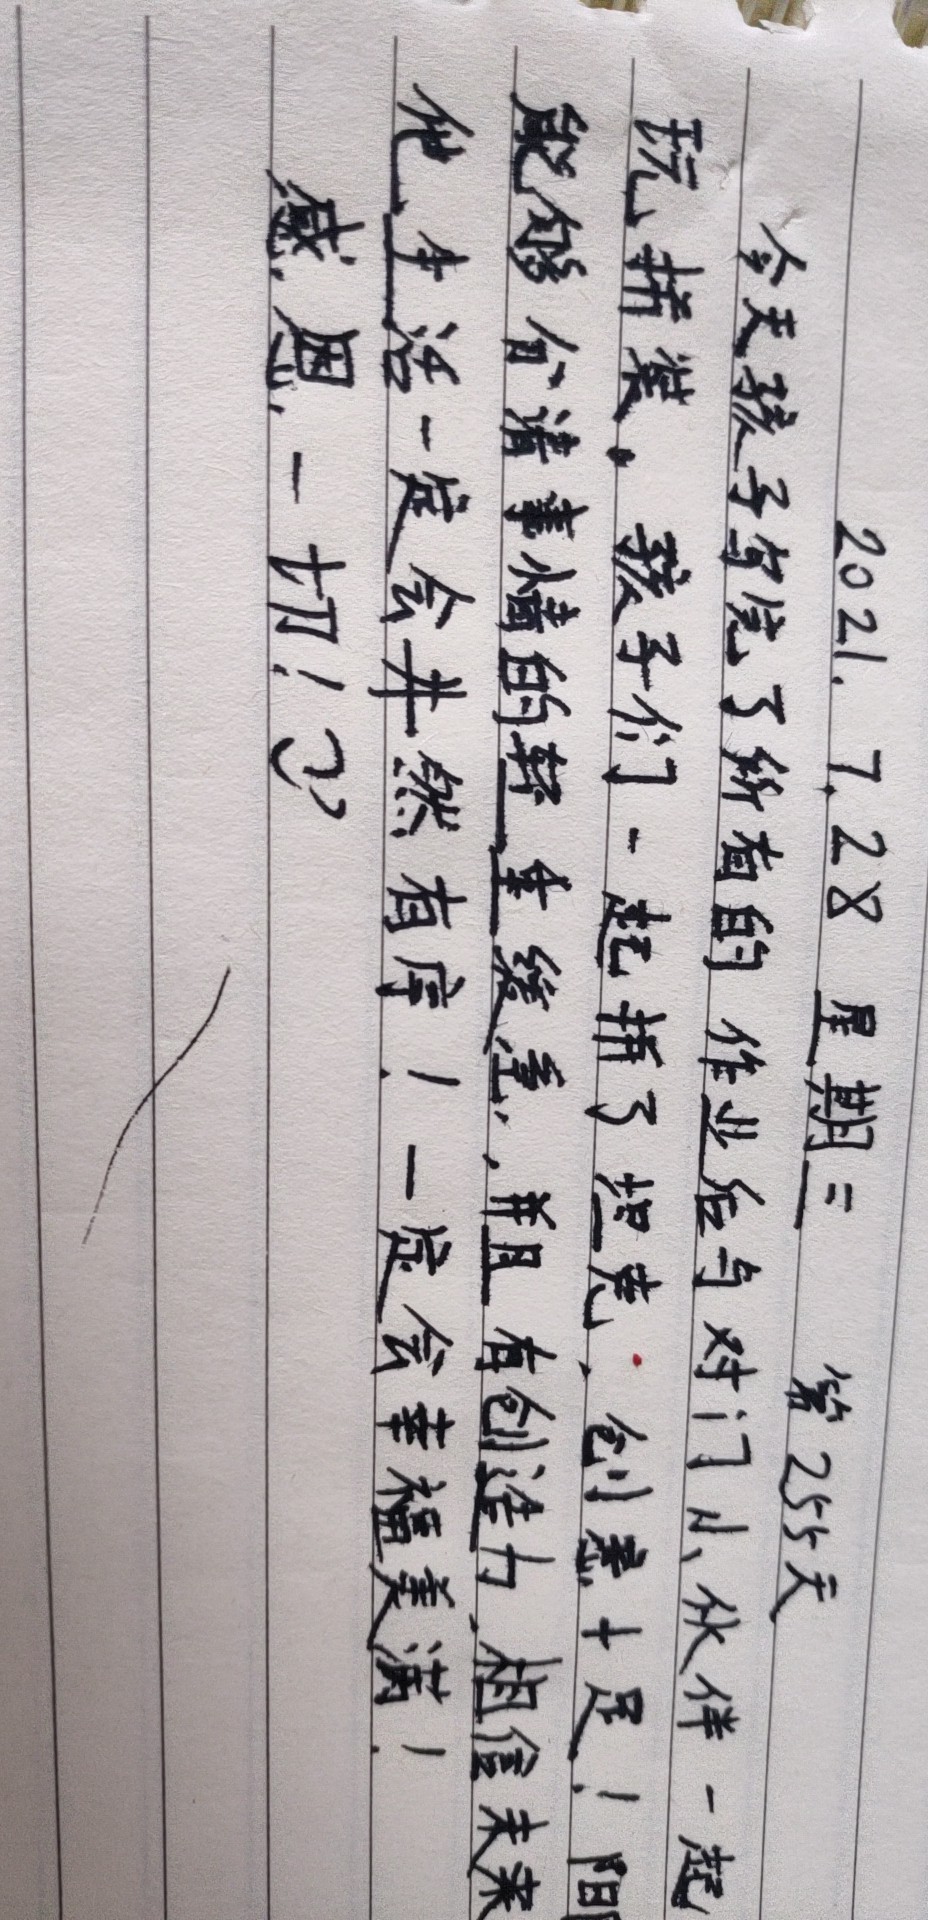 2021.7.28 星期三 第255天
今天孩子写完了所有的作业后与对门小伙伴一起
玩捕粪。孩子们一起捕了坦克、创意十足!阳
能够分清事情的轻重缓急,并且有创造力、相信未来
他生活一定会井然有序!一定会幸福美满!
感恩一切!